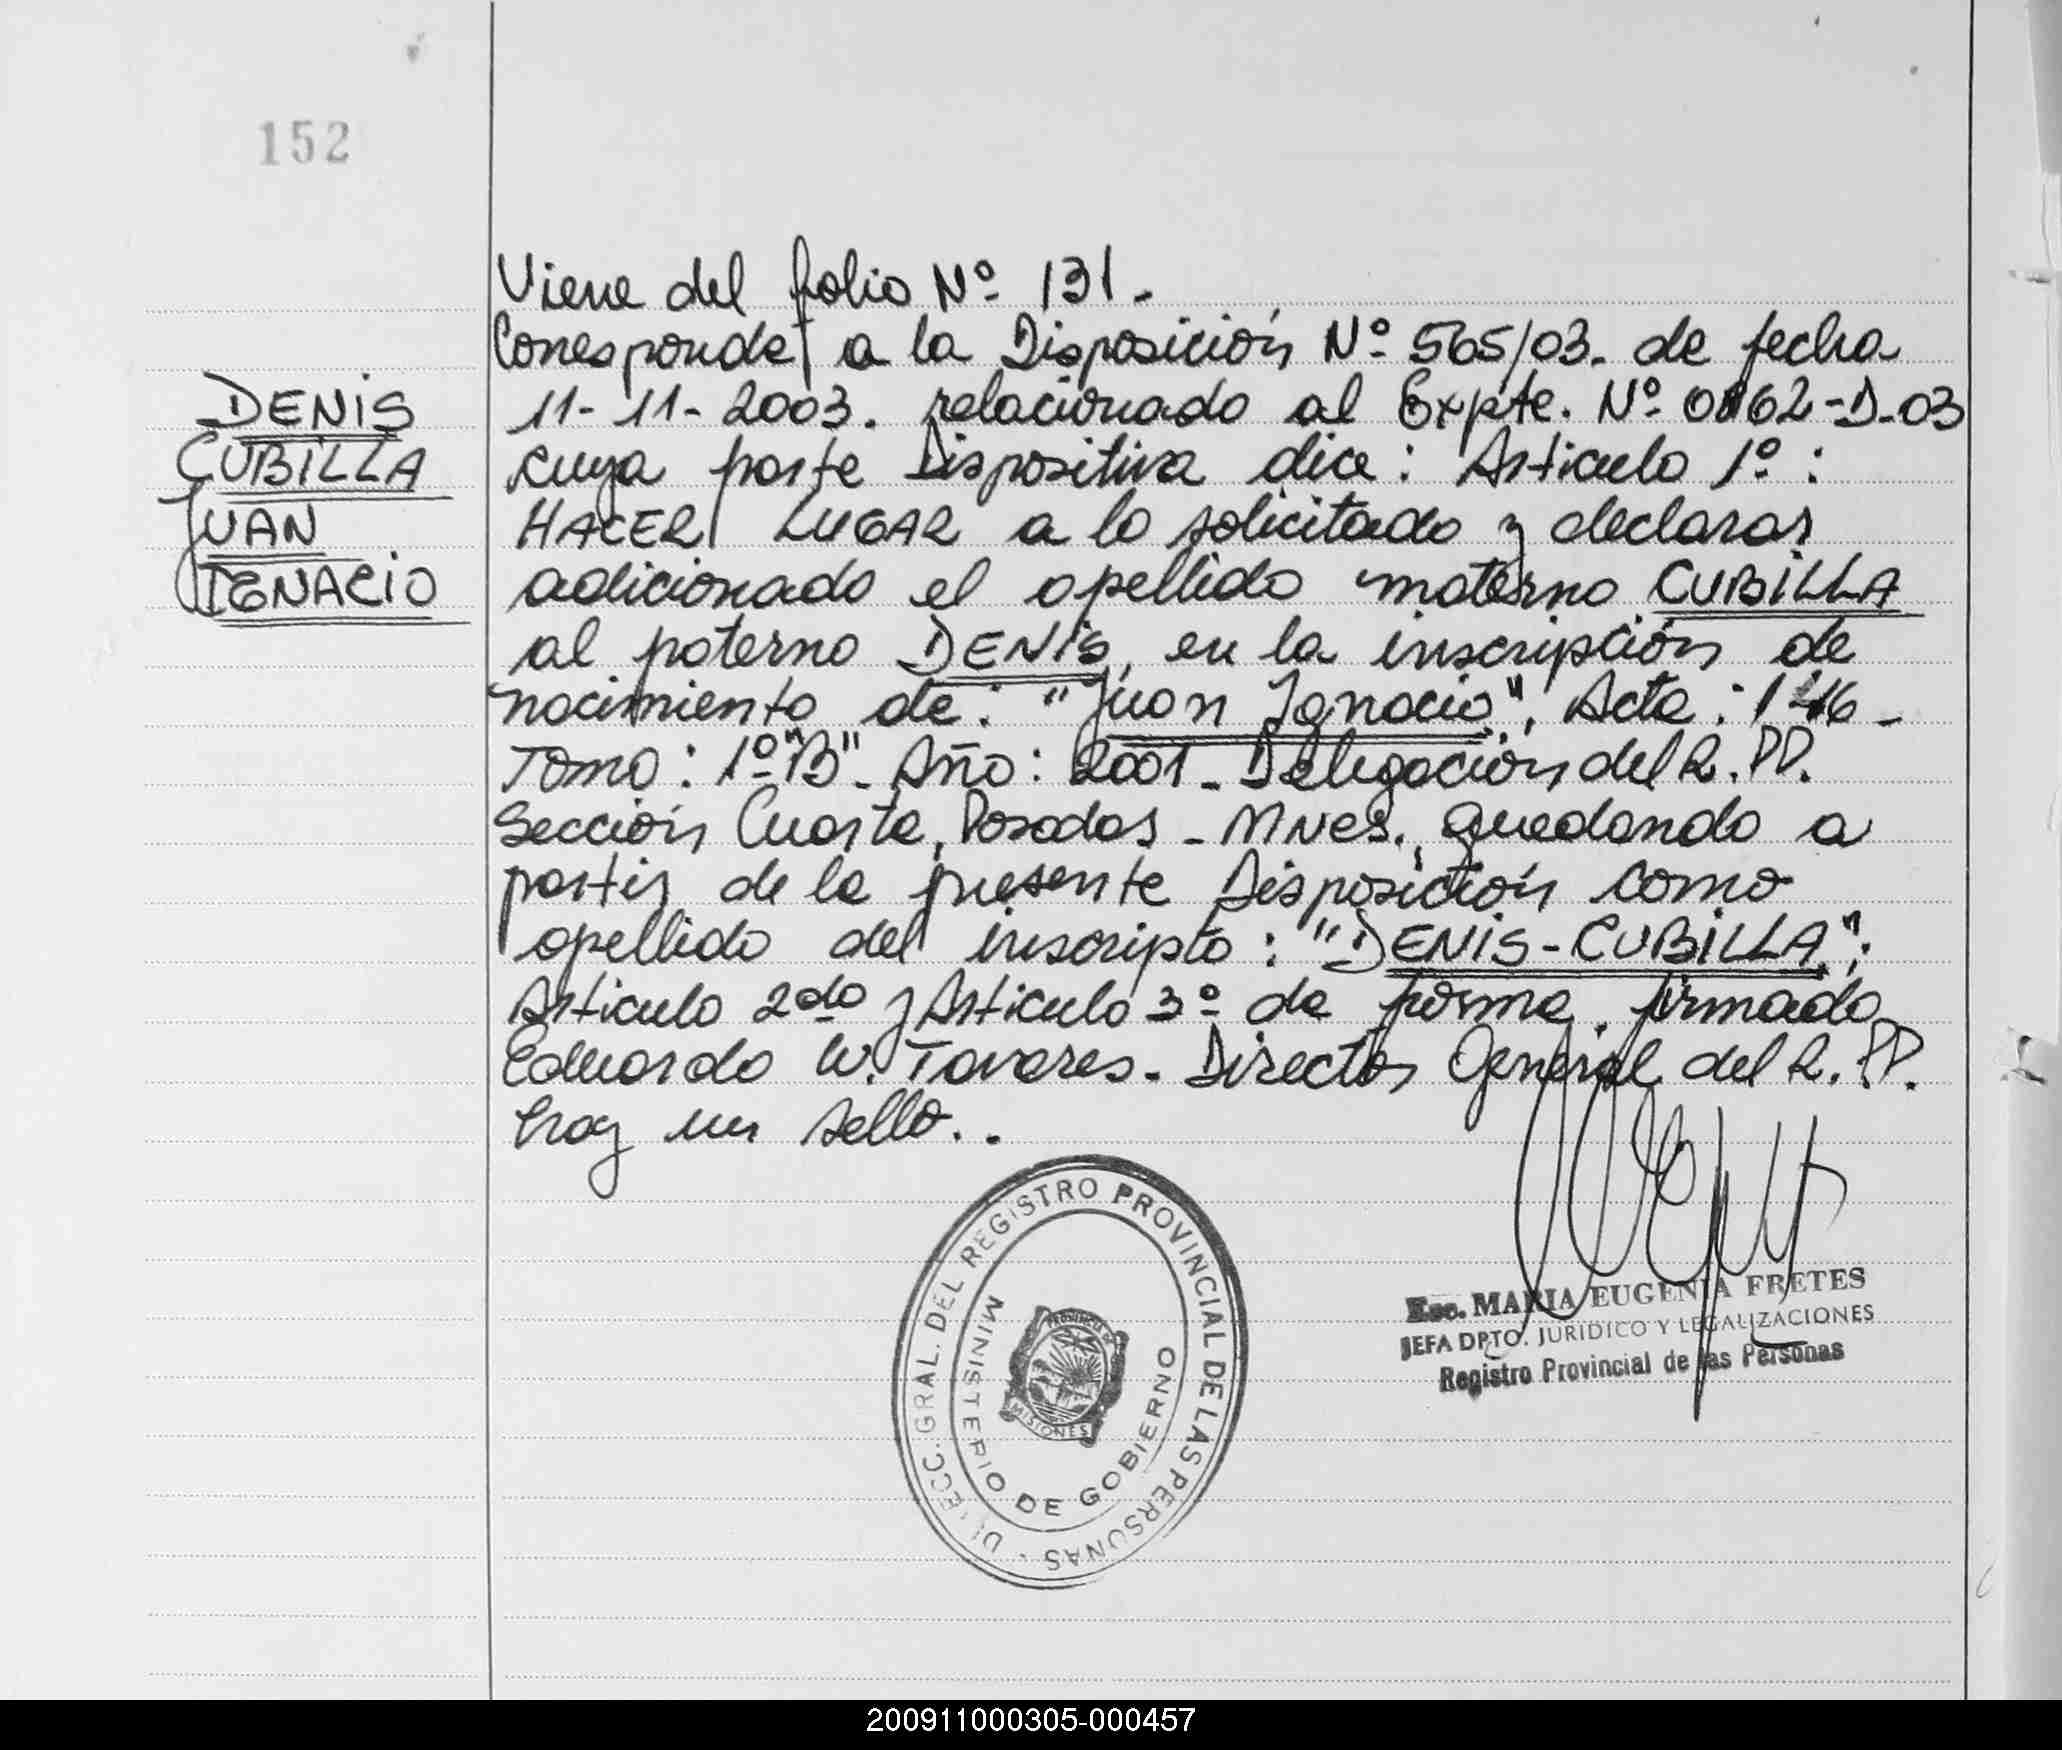 152
DENIS
CUBILLA
JUAN
IGNACIO
Viene del folio Nº 131.-
Corresponde a la Disposición Nº 565/03. de fecha
11-11-2003. relacionado al Expte. Nº 0162-D-03
cuya parte Dispositiva dice: Articulo 1º:
HACER LUGAR a lo solicitado y declarar
adicionado el apellido materno CUBILLA
al paterno DENIS, en la inscripción de
nacimiento de: "Juan Ignacio", Acta: 1416-
Tomo: 1º "B"- Año: 2001- Delegación del R.PP.
Sección Cuarta, Posadas - Mnes., quedando a
partir de la presente Disposición como
apellido del inscripto: "DENIS-CUBILLA";
Articulo 2do y Articulo 3º de forma. firmado
Eduardo W. Tavares. Director General del R.PP.
hay un sello..
DIRECC. GRAL. DEL REGISTRO PROVINCIAL DE LAS PERSONAS
MINISTERIO DE GOBIERNO
PROVINCIA DE
MISIONES
Esc. MARIA EUGENIA FRETES
JEFA DPTO. JURIDICO Y LEGALIZACIONES
Registro Provincial de las Personas
200911000305-000457